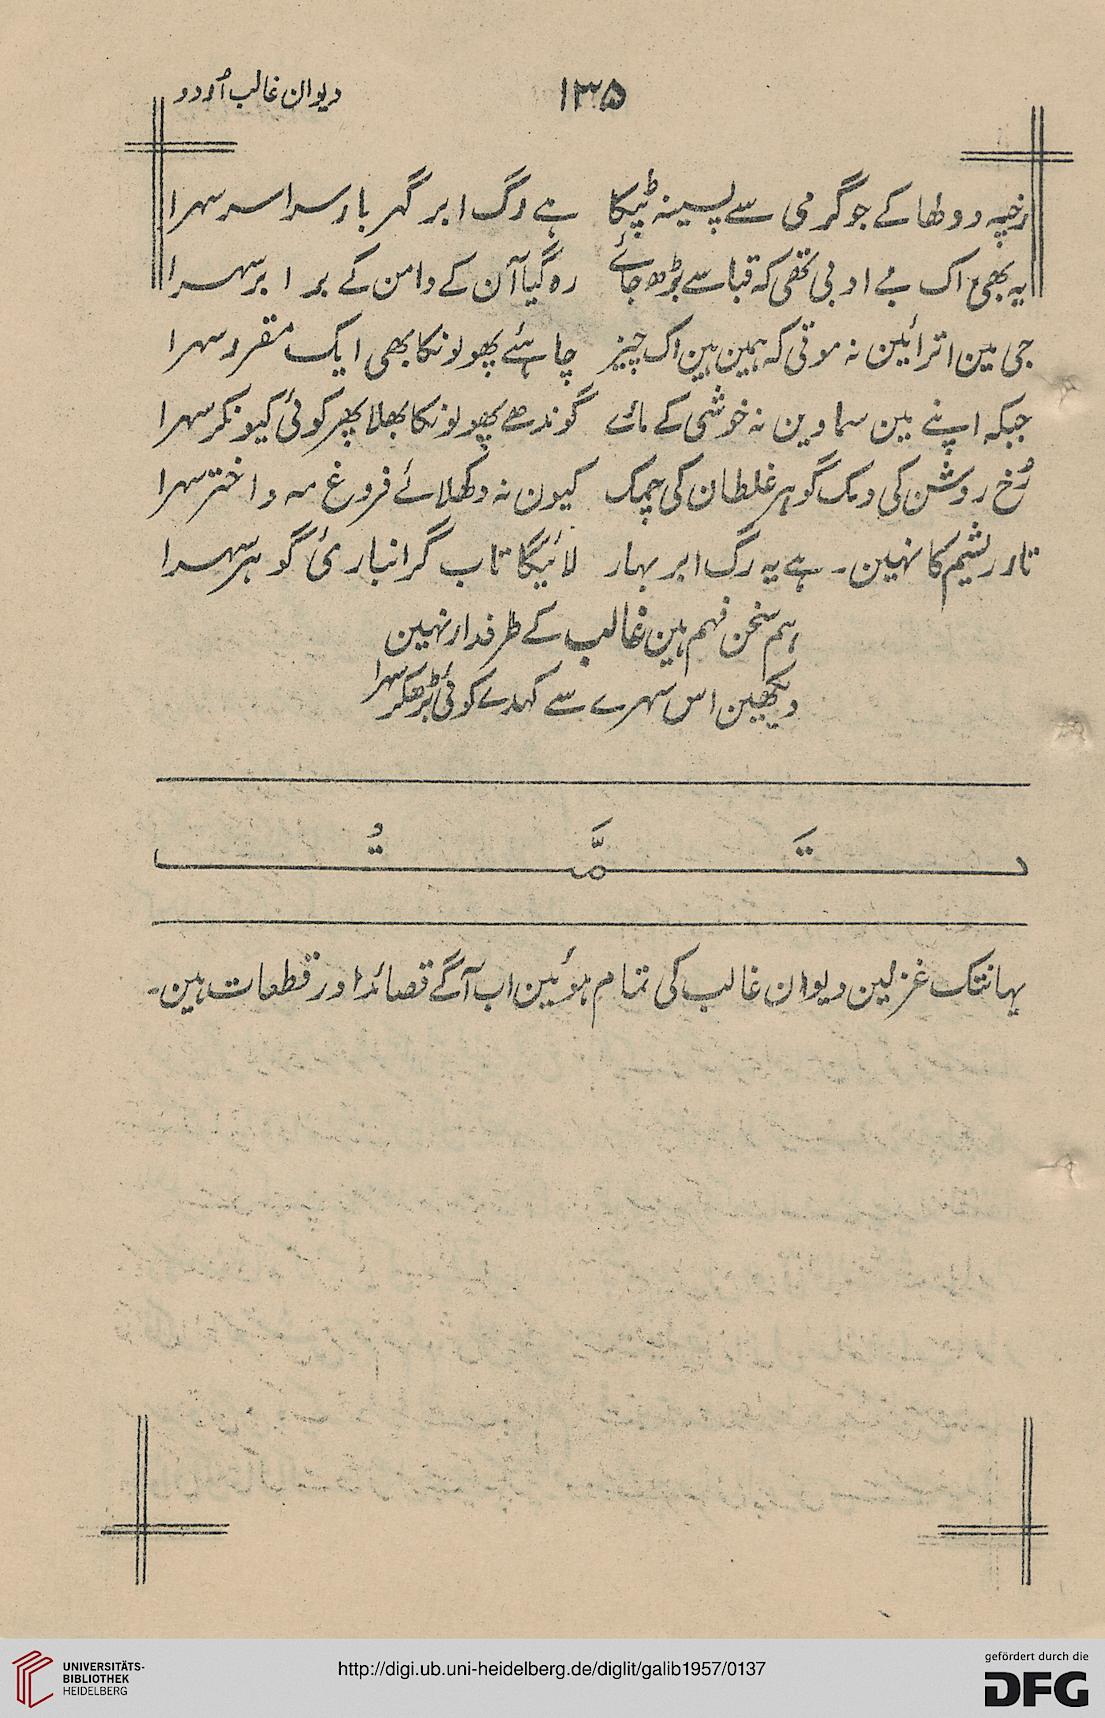 ۱۳۵ دیوان غالب اُردو
رخپہ دولھا کے جو گرمی سے پسینہ ٹپکا ہے رگ ابر گہر بار سراسر سہرا
یہ بھی اک بے ادبی تھی کہ قبا سے بڑھ جائے رہ گیا آن کے دامن کے برابر سہرا
جی مین اترائین نہ موتی کہ ہمین ہین اک چیز چاہئے پھولونکا بھی ایک مقرر سہرا
جبکہ اپنے مین سماوین نہ خوشی کے مارے گوندھے پھولونکا بھلا پھر کوئی کیونکر سہرا
رُخ روشن کی دمک گوہر غلطان کی چمک کیون نہ دکھلائے فروغ مہ و اختر سہرا
تار ریشم کا نہین۔ ہے یہ رگ ابر بہار لائیگا تاب گرانباریٔ گوہر سہرا
ہم سخن فہم ہین غالب کے طرفدار نہین
دیکھین اس سہرے سے کہدے کوئی بڑھکر سہرا
تَمَّتُ
یہانتک غزلین دیوان غالب کی تمام ہوئین اب آگے قصائد اور قطعات ہین۔
UNIVERSITÄTS-
BIBLIOTHEK
HEIDELBERG
http://digi.ub.uni-heidelberg.de/diglit/galib1957/0137
gefördert durch die
DFG